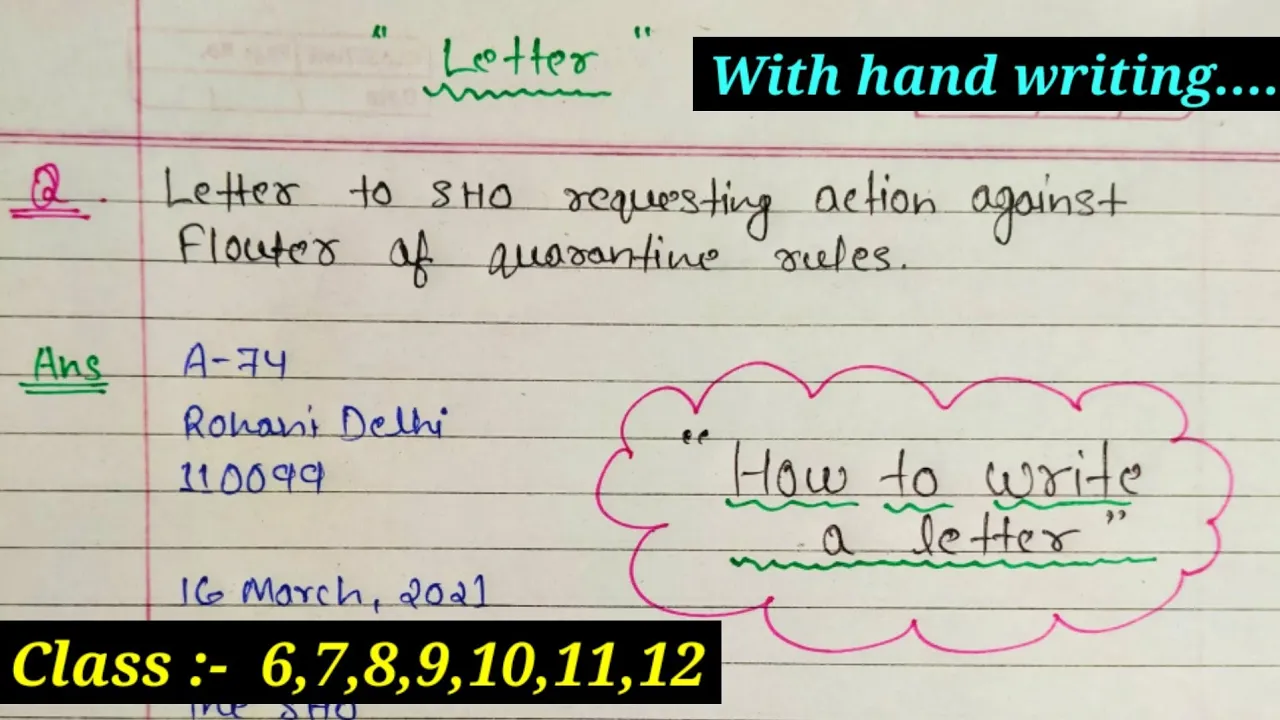 " Letter "
With hand writing....
Q. Letter to SHO requesting action against
Flouter of quarantine rules.
Ans A-74
Rohani Delhi
110099
"How to write
a letter"
16 March, 2021
Class :- 6,7,8,9,10,11,12
The SHO